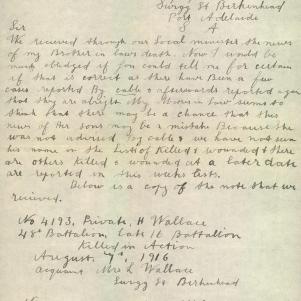 Surgg St Birkenhead
Port Adelaide
S A
Sir
We received through our Local minister the news
of my Brother in laws death. Now I would be
much obliged if you could tell me for certain
if that is correct as there have been a few
cases reported By cable & afterwards reported again
that they are alright. My Mother in law seems to
think that there may be a chance that this
news of her sons may be a mistake Because she
was not advised by cable & we have not seen
his name on the List of Killed & wounded & there
are others Killed & wounded at a later date
are reported in this weeks lists.
Below is a copy of the note that we
received.
No 4193, Private, H Wallace
48th Battalion, late 16 Battalion
Killed in Action
August, 7th, 1916
acquaint Mrs L Wallace
Surgg St Birkenhead